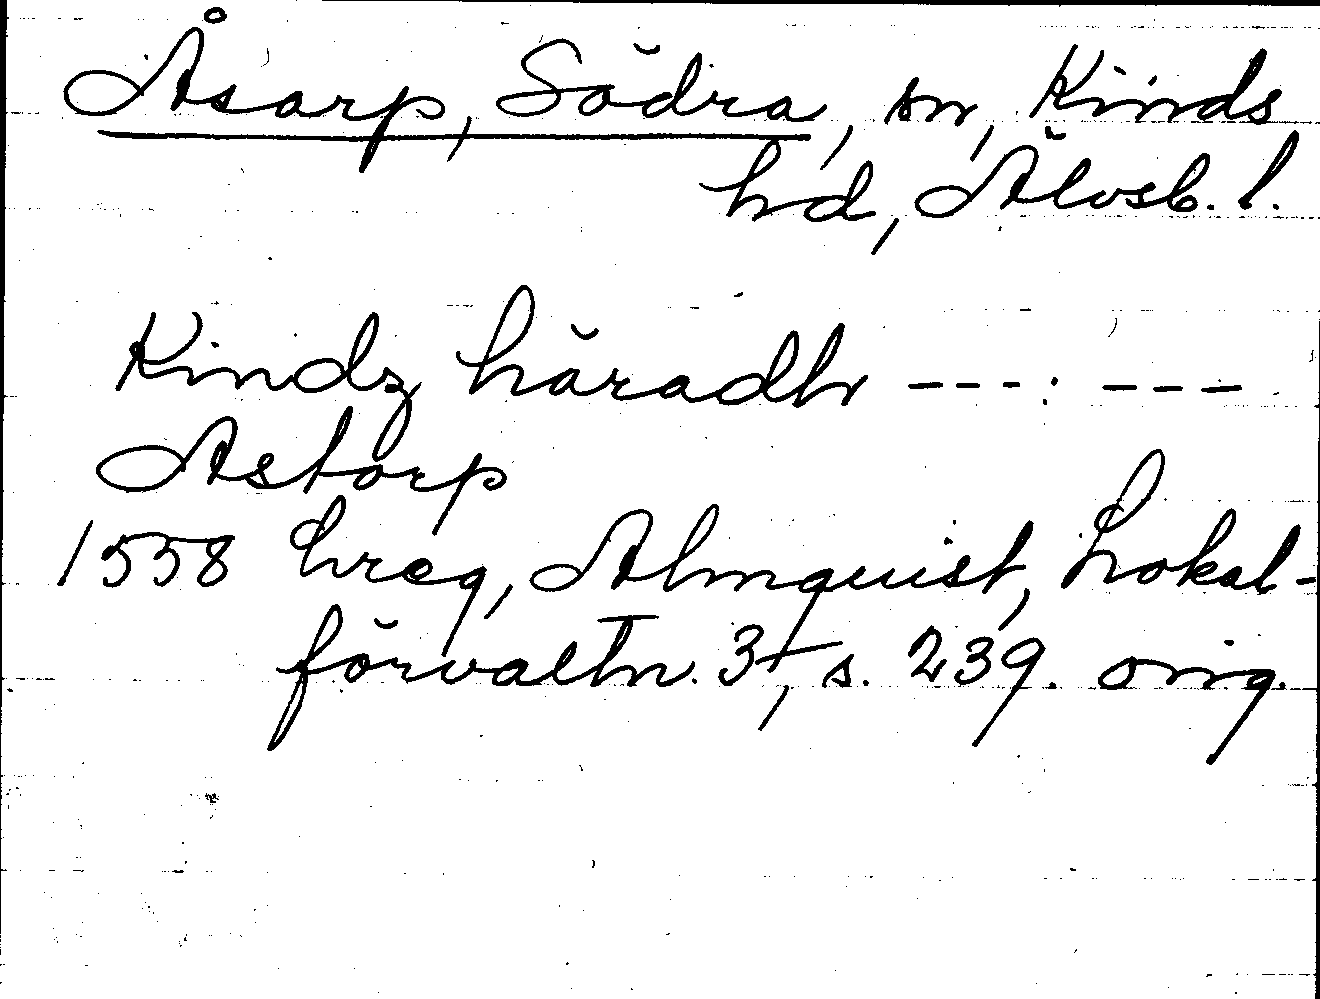 Åsarp, Södra, sn, Kinds
hd, Älvsb. l.
Kindz häradh ---: ---
Astorp
1558 hreg, Almquist, Lokal-
förvaltn. 3, s. 239. orig.